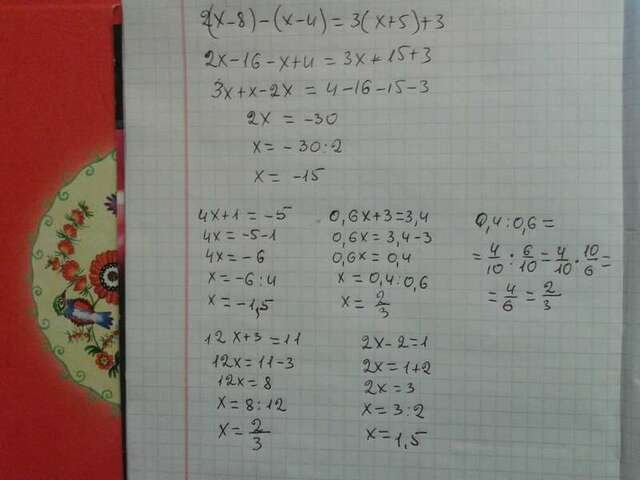 2(x-8)-(x-4)=3(x+5)+3
2x-16-x+4=3x+15+3
3x+x-2x=4-16-15-3
2x=-30
x=-30:2
x=-15
4x+1=-5
4x=-5-1
4x=-6
x=-6:4
x=-1,5
0,6x+3=3,4
0,6x=3,4-3
0,6x=0,4
x=0,4:0,6
x=2/3
0,4:0,6=
=4/10:6/10=4/10·10/6=
=4/6=2/3
12x+3=11
12x=11-3
12x=8
x=8:12
x=2/3
2x-2=1
2x=1+2
2x=3
x=3:2
x=1,5